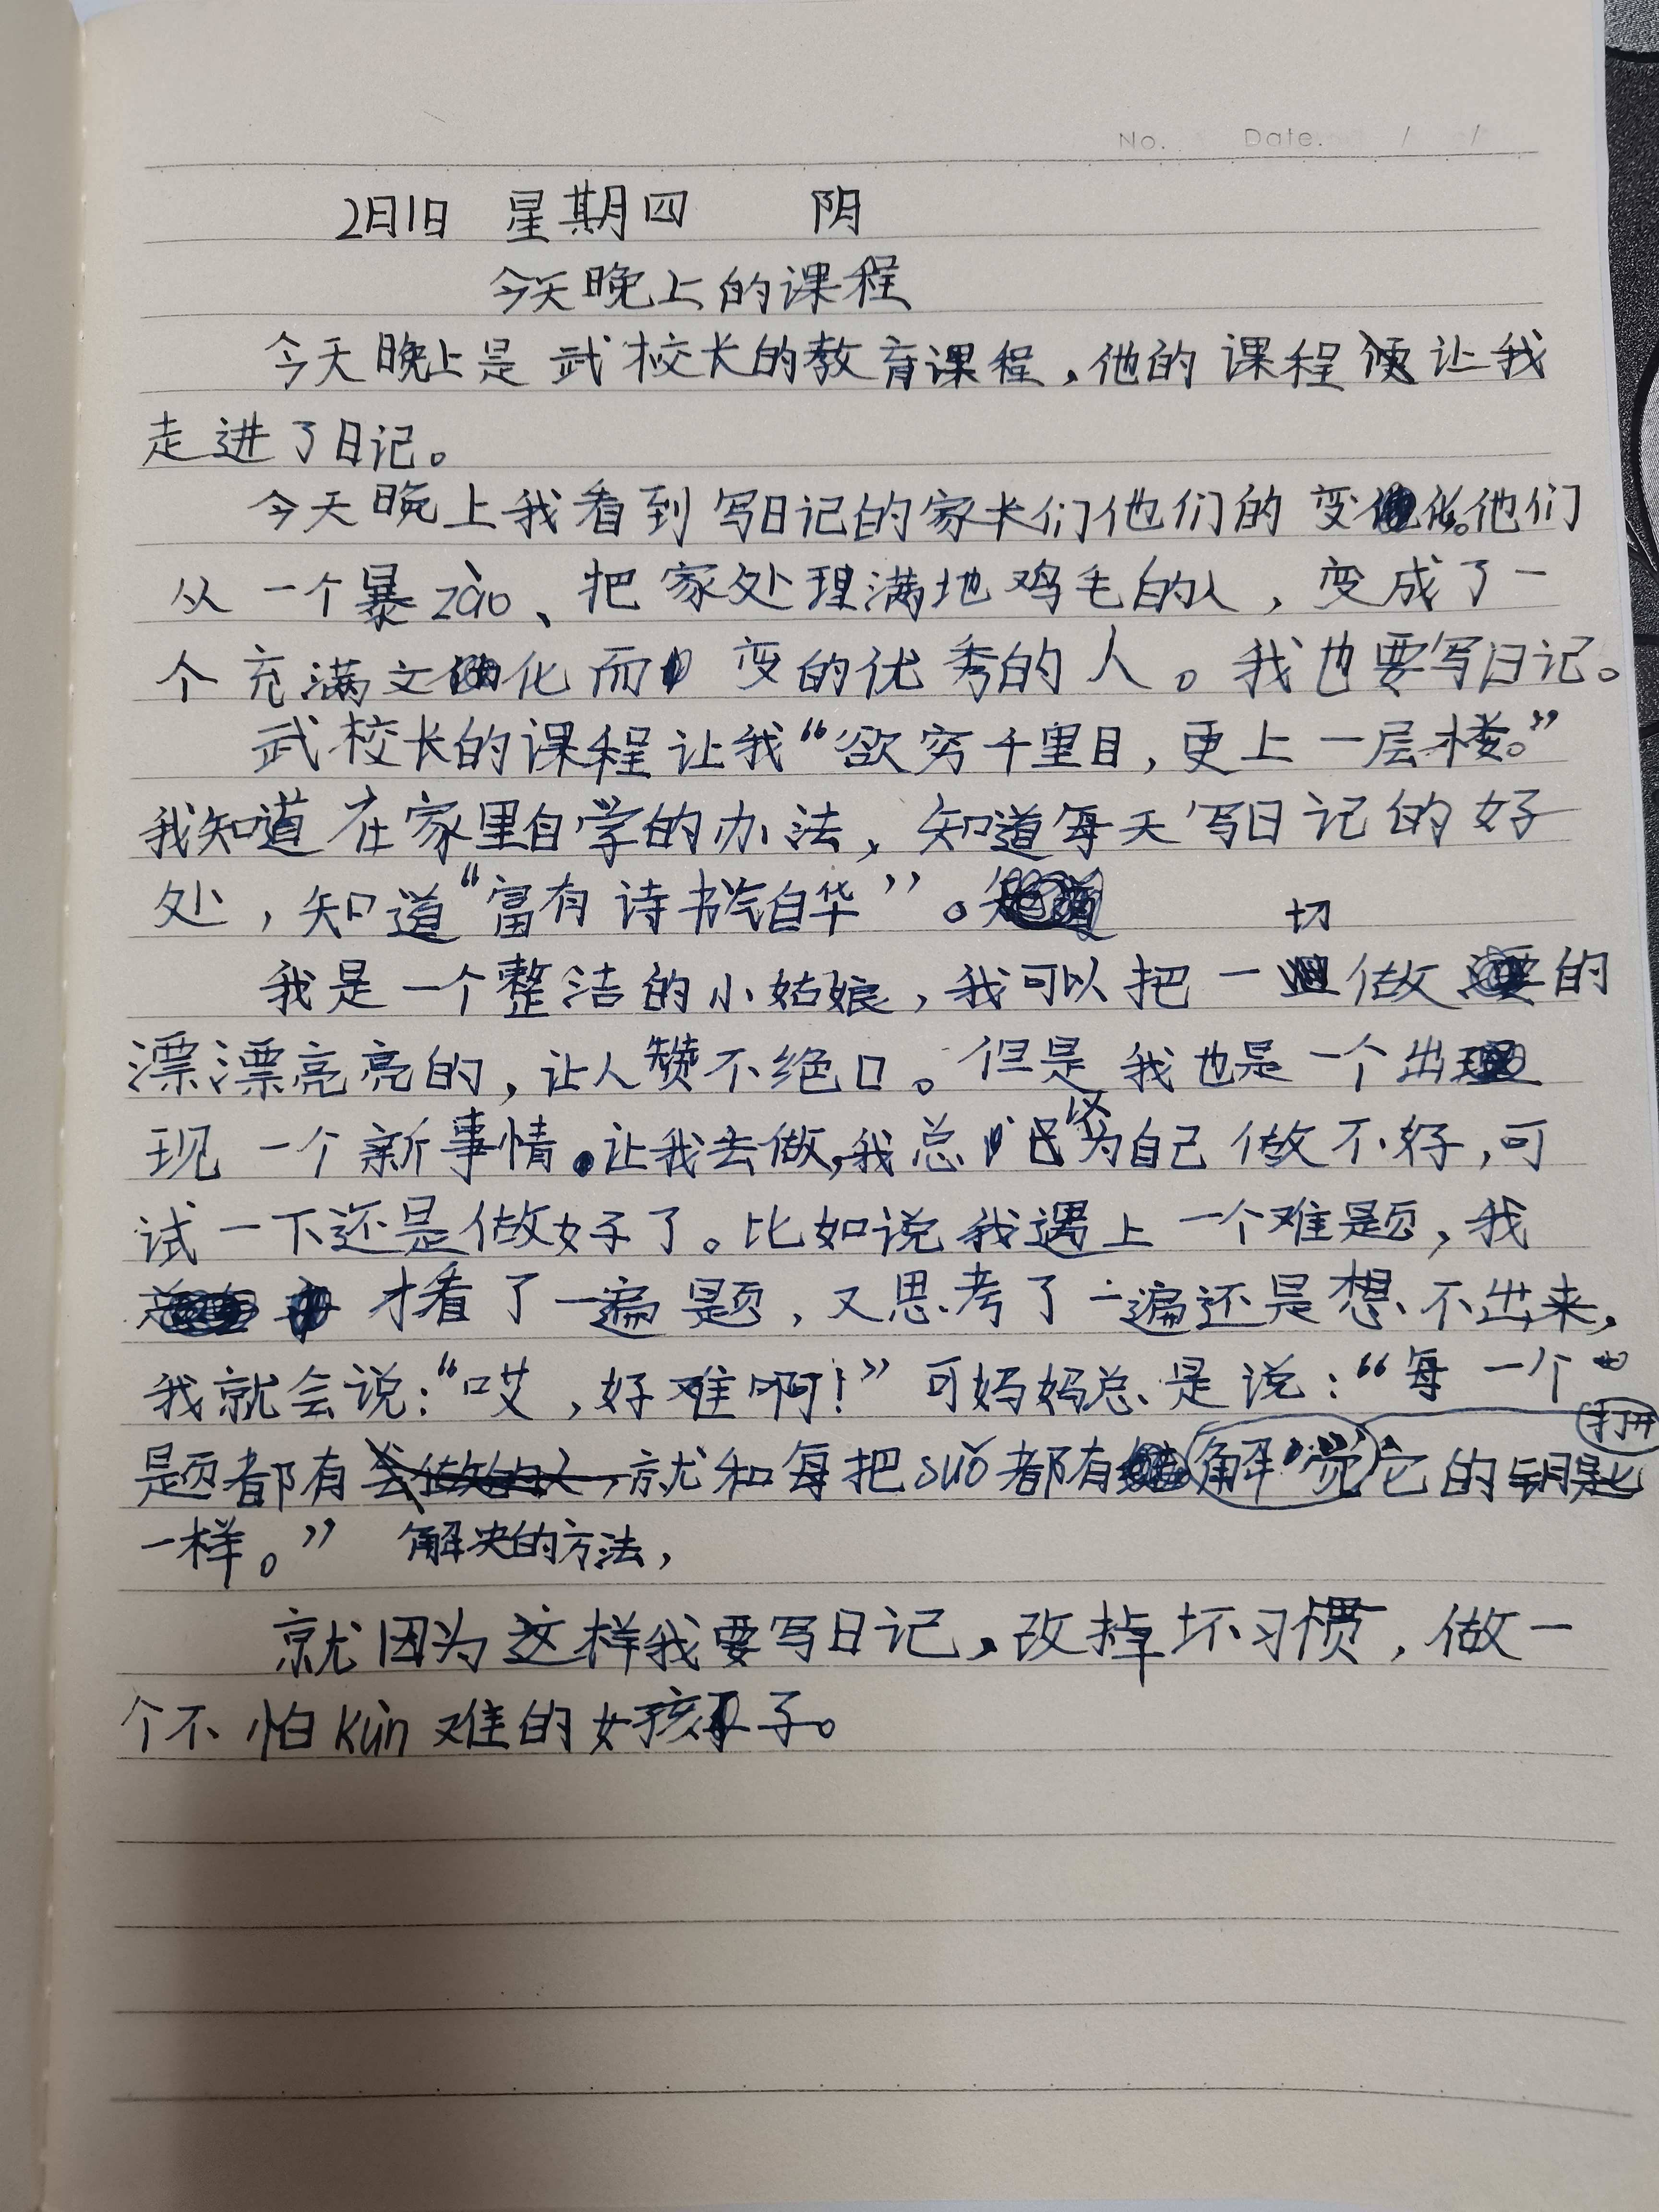 No. Date. / /
2月1日 星期四 阴
今天晚上的课程
今天晚上是武校长的教育课程,他的课程便让我
走进了日记。
今天晚上我看到写日记的家长们他们的变化。他们
从一个暴zào、把家处理满地鸡毛的人,变成了一
个充满文化而变的优秀的人。我也要写日记。
武校长的课程让我“欲穷千里目,更上一层楼。”
我知道在家里自学的办法,知道每天写日记的好
处,知道“富有诗书气自华”。
我是一个整洁的小姑娘,我可以把一切做的
漂漂亮亮的,让人赞不绝口。但是我也是一个出
现一个新事情。让我去做,我总以为自己做不好,可
试一下还是做好了。比如说我遇上一个难题,我
才看了一遍题,又思考了一遍还是想不出来,
我就会说:“哎,好难啊!”可妈妈总是说:“每一个
题都有就和每把suǒ都有打开它的钥匙
一样。” 解决的方法,
就因为这样我要写日记,改掉坏习惯,做一
个不怕kùn难的女孩子。